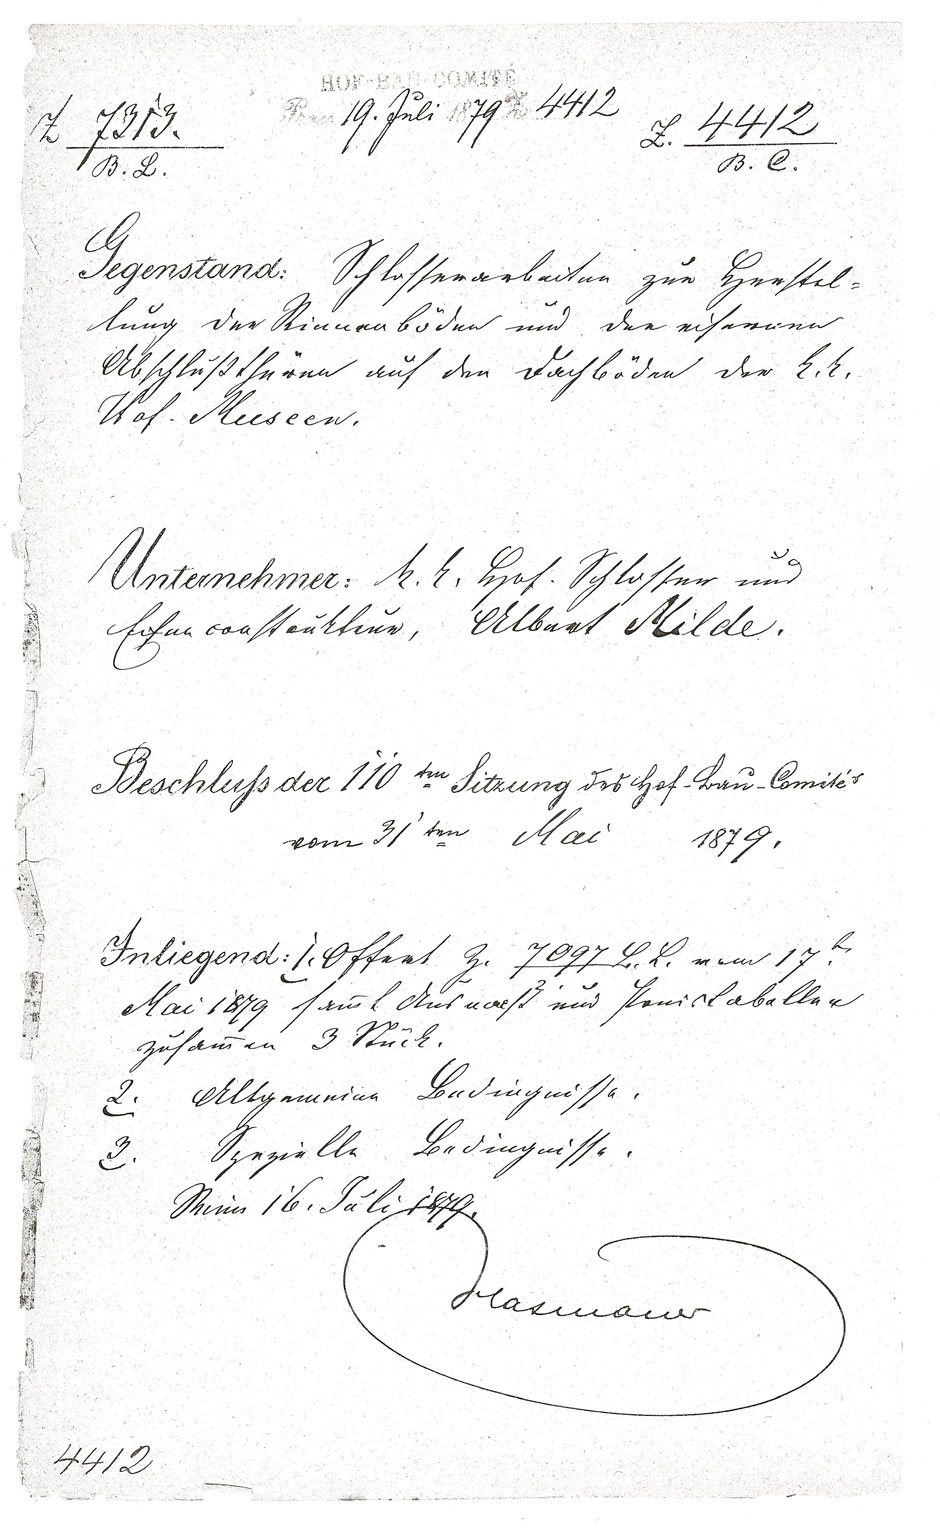 HOF-BAU-COMITÉ
Z 7313.
B. L.
19. Juli 1879 4412
Z. 4412
B. C.
Gegenstand: Schlosserarbeiten zur Herstel-
lung der Rinnenböden und der eisernen
Abschlußthüren auf den Dachböden der k. k.
Hof-Museen.
Unternehmer: k. k. Hof-Schlosser und
Eisenconstrukteur, Albert Milde.
Beschluss der 110ten Sitzung des Hof-Bau-Comités
vom 31ten Mai 1879.
Inliegend: 1. Offert Z. 7097 B. L. vom 17t.
Mai 1879 sam̅t Ausmaß und Preistabellen
zusam̅en 3 Stück.
2. Allgemeine Bedingnisse.
3. Spezielle Bedingnisse.
Wien 16. Juli 1879.
Hasenauer
4412